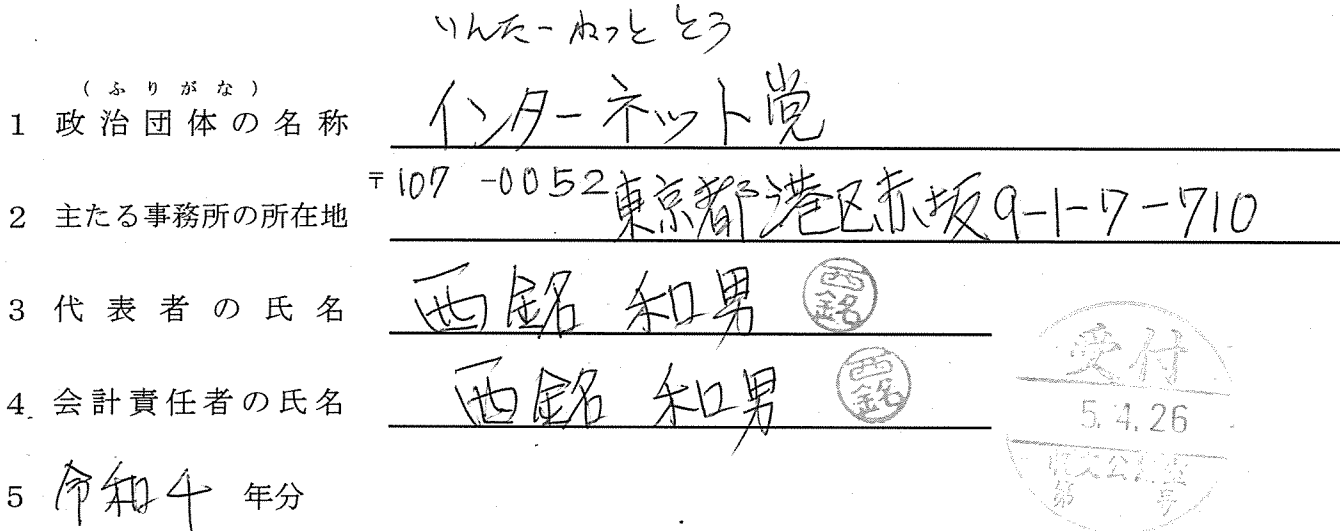 いんたーねっと とう
(ふりがな)
1 政治団体の名称 インターネット党
2 主たる事務所の所在地 〒107-0052 東京都港区赤坂9-1-7-710
3 代表者の氏名 西銘 和男 西銘
4 会計責任者の氏名 西銘 和男 西銘
5 令和4 年分
受付
5.4.26
第 号